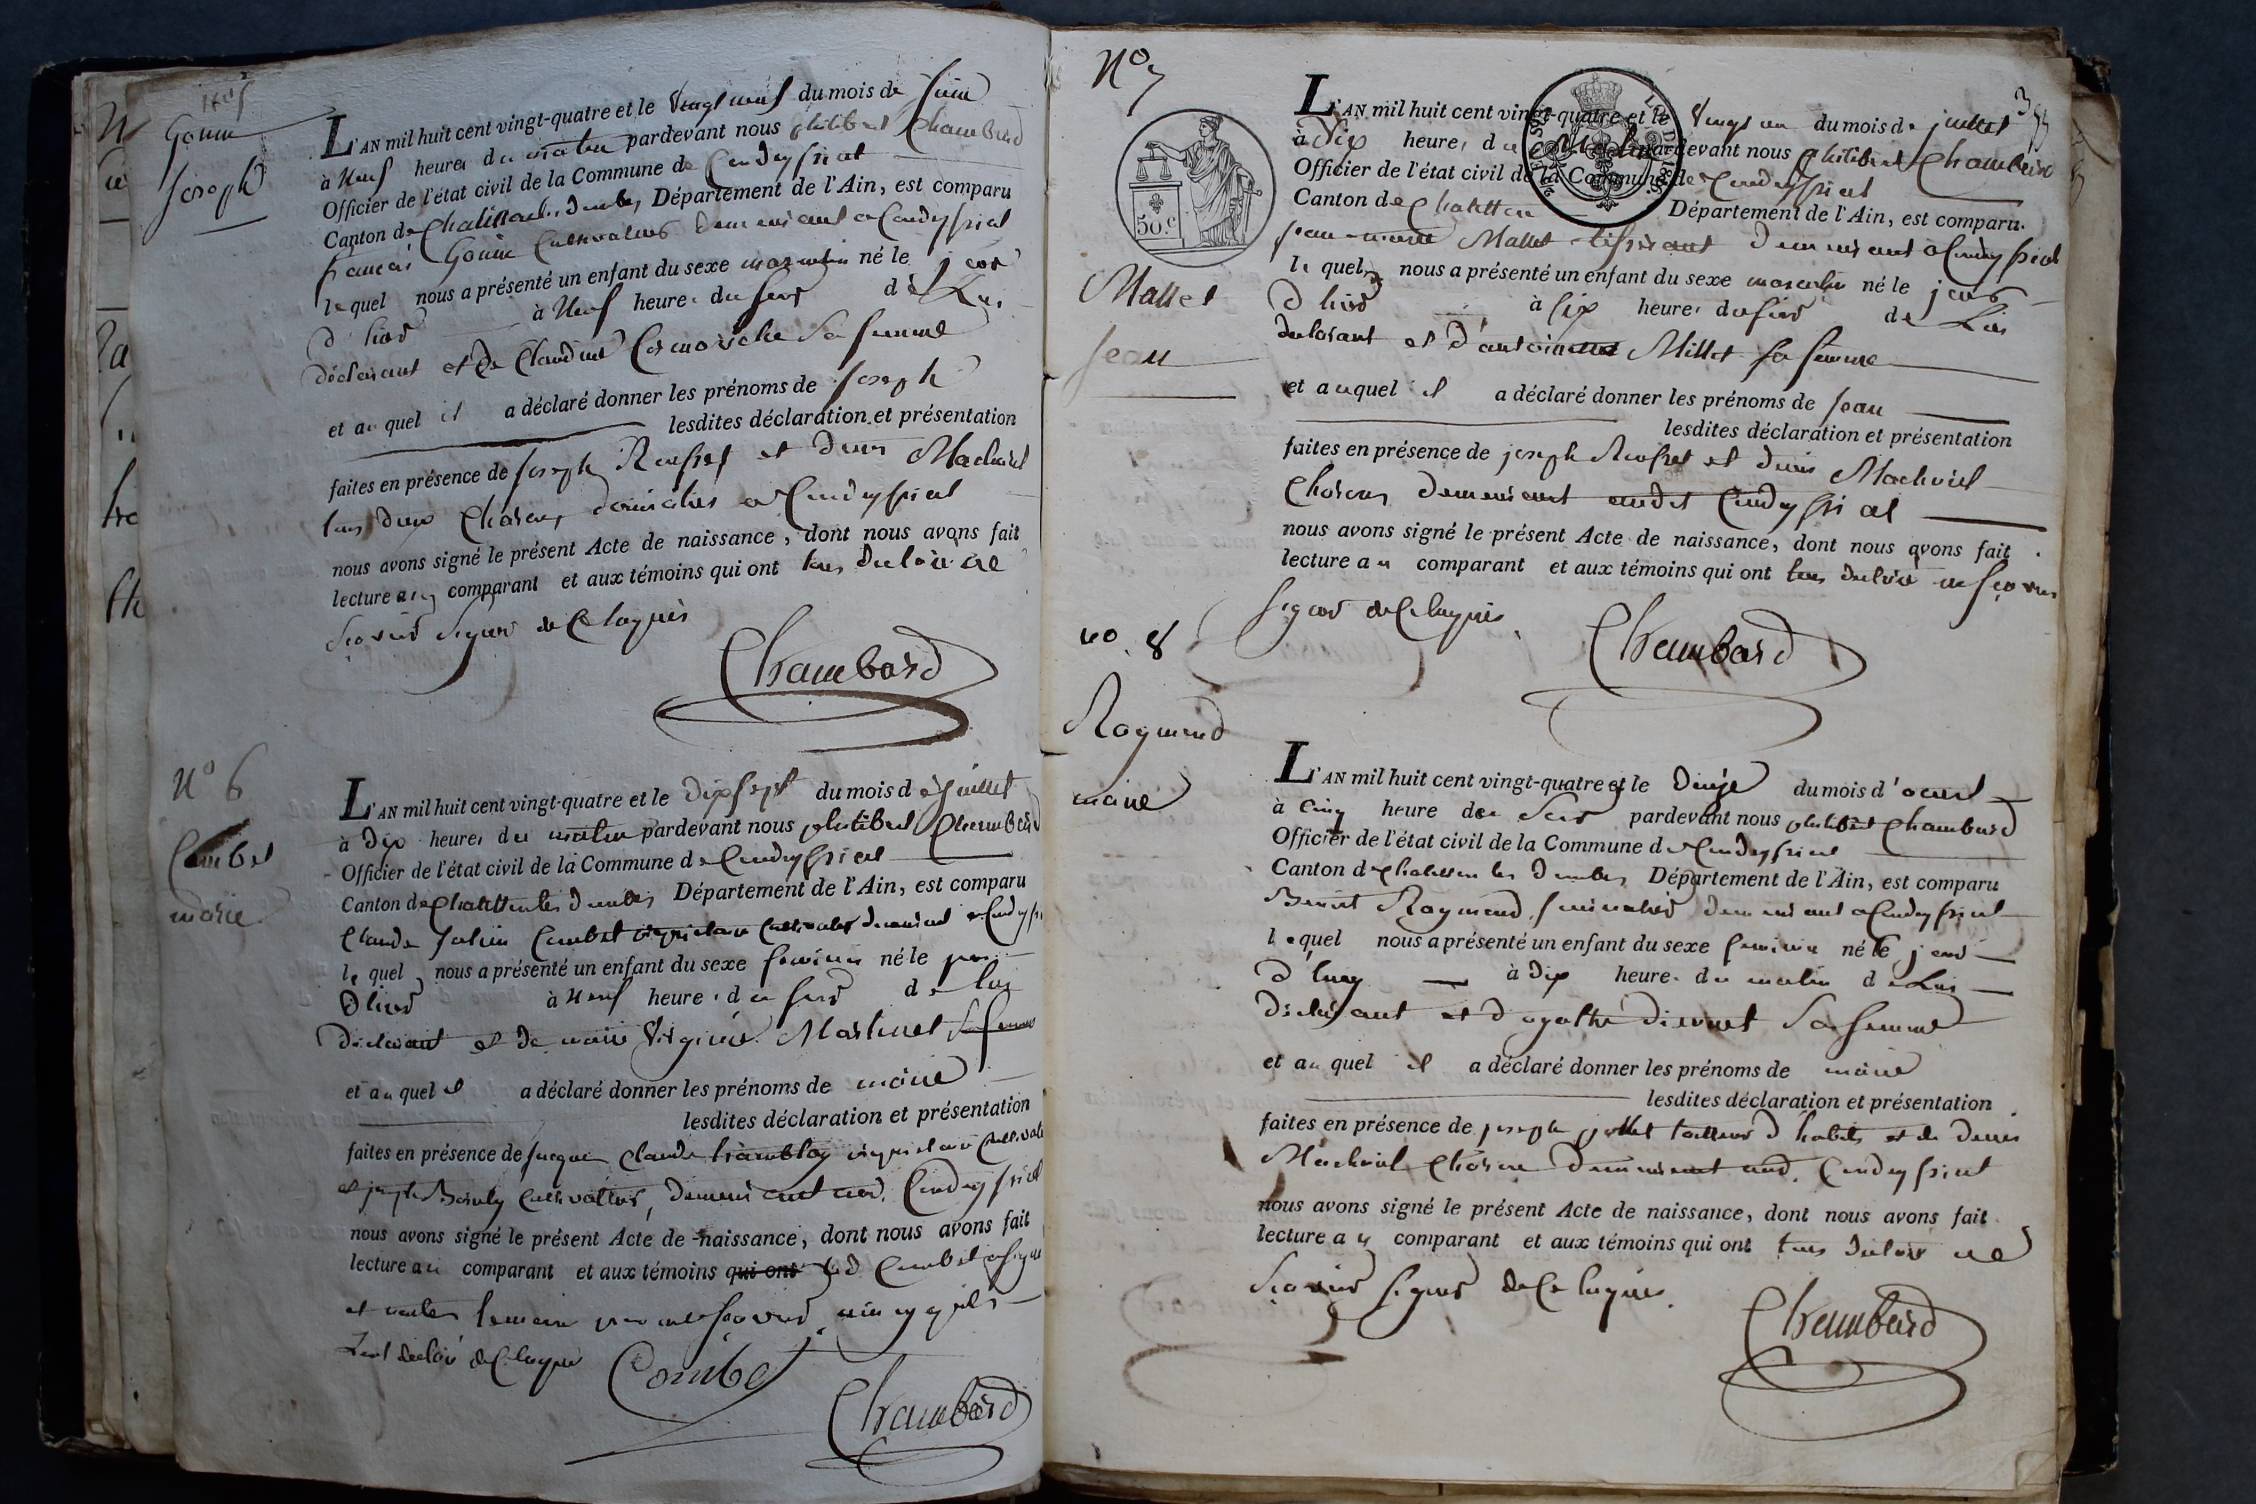 N° 5
Gonin
Joseph
L'AN mil huit cent vingt-quatre et le vingt neuf du mois de juin
à neuf heures du matin pardevant nous philibert Chambard
Officier de l'état civil de la Commune de Condeyssiat
Canton de Chatillon les dombes Département de l'Ain, est comparu
françois Gonin Cultivateur demeurant a Condeyssiat
lequel nous a présenté un enfant du sexe masculin né le jour
d'hier à neuf heures du soir de Lui
déclarant et de Claudine sa femme
et auquel il a déclaré donner les prénoms de Joseph
lesdites déclaration et présentation
faites en présence de Joseph et denis
tous deux domiciliés a Condeyssiat
nous avons signé le présent Acte de naissance, dont nous avons fait
lecture aux comparant et aux témoins qui ont tous déclaré ne
Sçavoir Signer de Ce Requis
Chambard
N° 6
Combet
marie
L'AN mil huit cent vingt-quatre et le dixsept du mois de juillet
à dix heures du matin pardevant nous philibert Chambard
Officier de l'état civil de la Commune de Condeyssiat
Canton de Chatillon les dombes Département de l'Ain, est comparu
Claude Julien Combet propriétaire Cultivateur demeurant a Condeyssiat
lequel nous a présenté un enfant du sexe féminin né le jour
d'hier à neuf heures du soir de lui
déclarant et de marie Virginie Martinet sa femme
et auquel il a déclaré donner les prénoms de marie
lesdites déclaration et présentation
faites en présence de Jacques Claude tramblay propriétaire Cultivateur
et joseph Cultivateur, demeurant aud. Condeyssiat
nous avons signé le présent Acte de naissance, dont nous avons fait
lecture au comparant et aux témoins qui ont led Combet a signé
et non les témoins pour ne sçavoir, ainsy qu'ils
l'ont déclaré de Ce Requis
Combet
Chambard
N° 7
50.C
Mallet
Jean
L'AN mil huit cent vingt-quatre et le vingt un du mois de juillet
à dix heures du matin pardevant nous philibert Chambard
Officier de l'état civil de la Commune de Condeyssiat
Canton de Chatillon Département de l'Ain, est comparu
jean-marie Mallet tisserant demeurant a Condeyssiat
lequel nous a présenté un enfant du sexe masculin né le jour
d'hier à six heures du soir de Lui
déclarant et d'antoinette Millet sa femme
et auquel il a déclaré donner les prénoms de Jean
lesdites déclaration et présentation
faites en présence de joseph et denis
demeurant audit Condeyssiat
nous avons signé le présent Acte de naissance, dont nous avons fait
lecture au comparant et aux témoins qui ont tous déclaré ne sçavoir
signer de Ce Requis.
Chambard
no. 8
Raymond
marie
L'AN mil huit cent vingt-quatre et le douze du mois d'aout
à cinq heure du Soir pardevant nous philibert Chambard
Officier de l'état civil de la Commune de Condeyssiat
Canton de Chatillon les dombes Département de l'Ain, est comparu
Benoit Raymond, demeurant a Condeyssiat
lequel nous a présenté un enfant du sexe féminin né le jour
à dix heures du matin de Lui
déclarant et d'agathe sa femme
et auquel il a déclaré donner les prénoms de marie
lesdites déclaration et présentation
faites en présence de joseph tailleur d'habits et de denis
demeurant aud. Condeyssiat
nous avons signé le présent Acte de naissance, dont nous avons fait
lecture au comparant et aux témoins qui ont tous déclaré ne
Sçavoir signer de Ce Requis.
Chambard